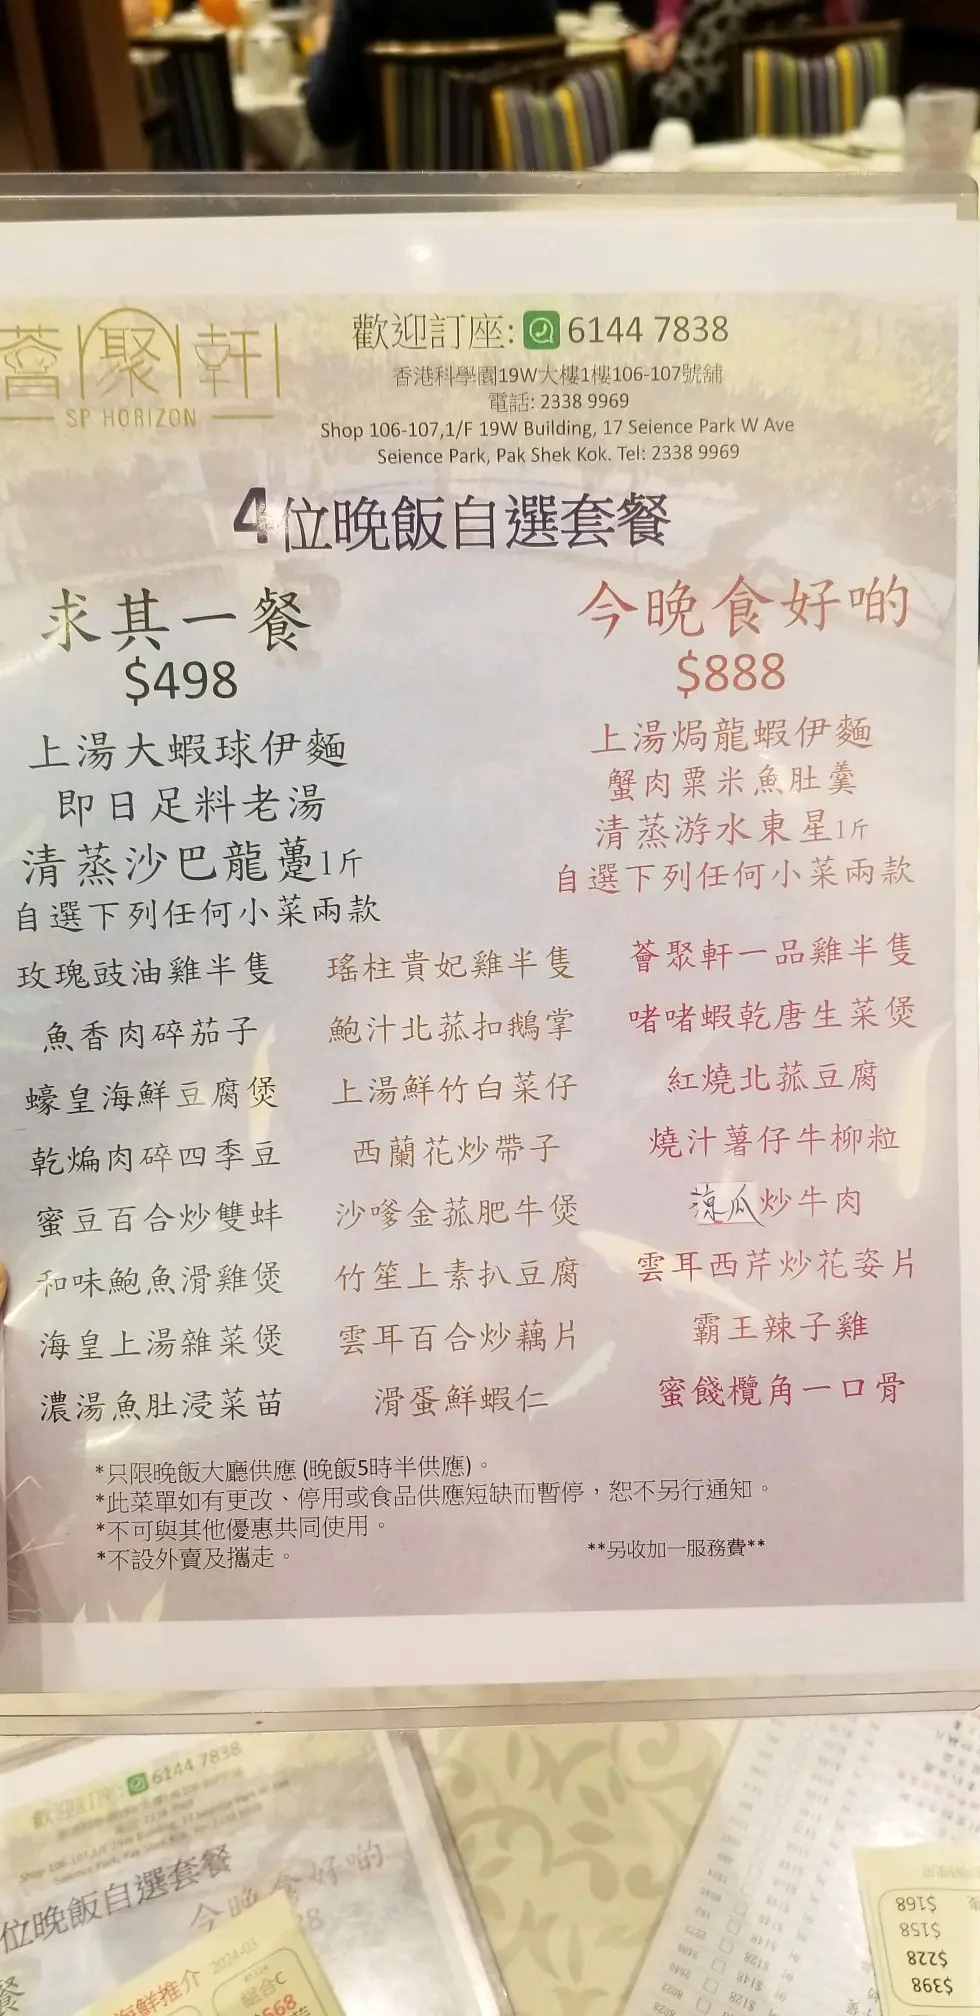 薈聚軒
SP HORIZON
歡迎訂座: 6144 7838
香港科學園19W大樓1樓106-107號舖
電話: 2338 9969
Shop 106-107,1/F 19W Building, 17 Seience Park W Ave
Seience Park, Pak Shek Kok. Tel: 2338 9969
4位晚飯自選套餐
求其一餐
$498
上湯大蝦球伊麵
即日足料老湯
清蒸沙巴龍躉1斤
自選下列任何小菜兩款
今晚食好啲
$888
上湯焗龍蝦伊麵
蟹肉粟米魚肚羹
清蒸游水東星1斤
自選下列任何小菜兩款
玫瑰豉油雞半隻
魚香肉碎茄子
蠔皇海鮮豆腐煲
乾煸肉碎四季豆
蜜豆百合炒雙蚌
和味鮑魚滑雞煲
海皇上湯雜菜煲
濃湯魚肚浸菜苗
瑤柱貴妃雞半隻
鮑汁北菰扣鵝掌
上湯鮮竹白菜仔
西蘭花炒帶子
沙嗲金菰肥牛煲
竹笙上素扒豆腐
雲耳百合炒藕片
滑蛋鮮蝦仁
薈聚軒一品雞半隻
啫啫蝦乾唐生菜煲
紅燒北菰豆腐
燒汁薯仔牛柳粒
涼瓜炒牛肉
雲耳西芹炒花姿片
霸王辣子雞
蜜餞欖角一口骨
*只限晚飯大廳供應 (晚飯5時半供應)。
*此菜單如有更改、停用或食品供應短缺而暫停，恕不另行通知。
*不可與其他優惠共同使用。
*不設外賣及攜走。
**另收加一服務費**
歡迎訂座: 6144 7838
位晚飯自選套餐
今晚食好啲
餐
海鮮推介 2024-03
組合C
$168
$158
$228
$398